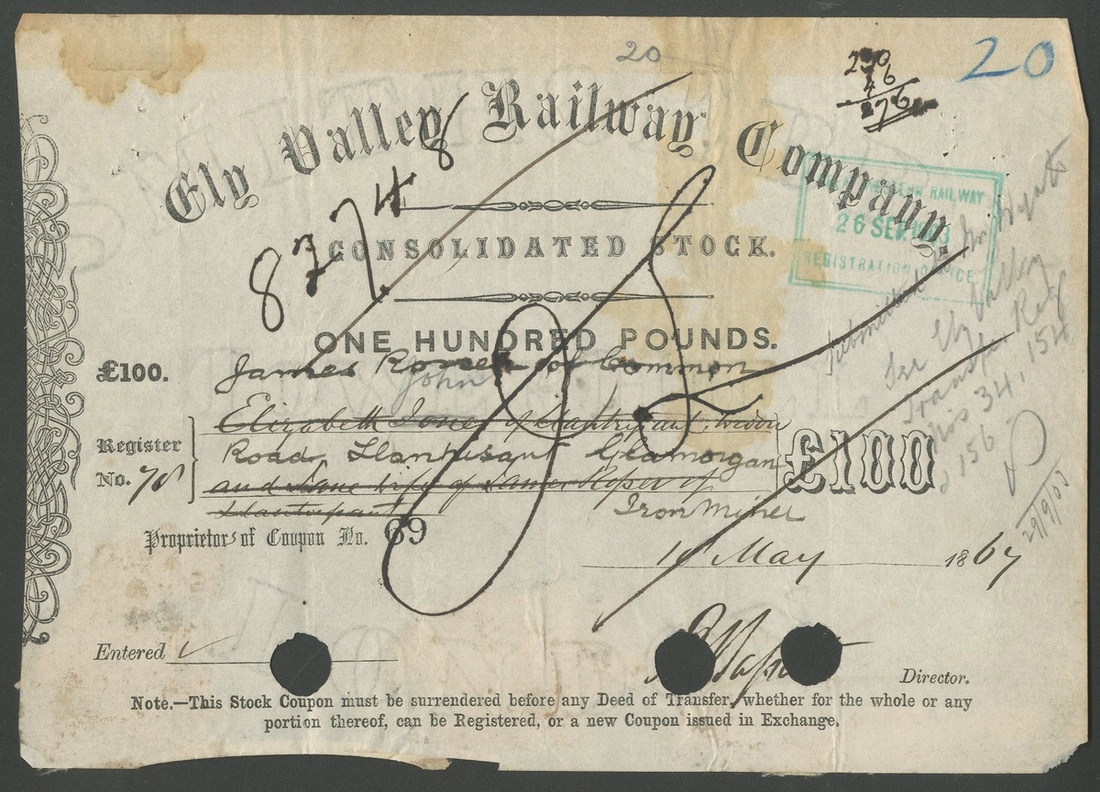 20
20
230
46
276
Ely Valley Railway Company.
WESTERN RAILWAY
26 SEP
REGISTRATION OFFICE
83748
CONSOLIDATED STOCK.
ONE HUNDRED POUNDS.
£100.
James Roper of Common
John
Elizabeth Jones of Llantrissant
Register
No. 78
Road, Llantrisant Glamorgan
and Jane wife of James Roper of
Llantrissant
Iron Miner
£100
Submitted
for Ely Valley
Transfer Reg
Nos 34, 154
& 156
29/9/03
Proprietors of Coupon No. 69
May 1867
Entered
Director.
Note.—This Stock Coupon must be surrendered before any Deed of Transfer, whether for the whole or any
portion thereof, can be Registered, or a new Coupon issued in Exchange.